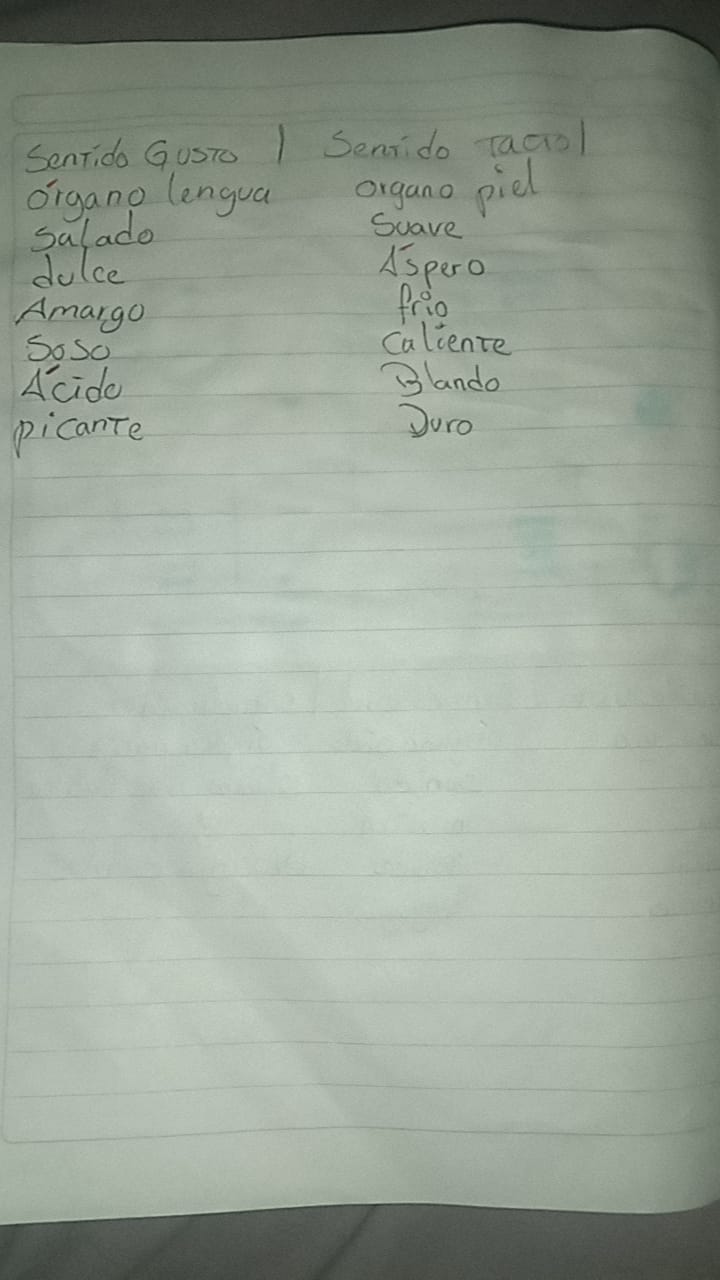 Sentido Gusto | Sentido Tacto |
órgano lengua organo piel
Salado Suave
dulce Áspero
Amargo frio
Soso Caliente
Ácido Blando
picante Duro